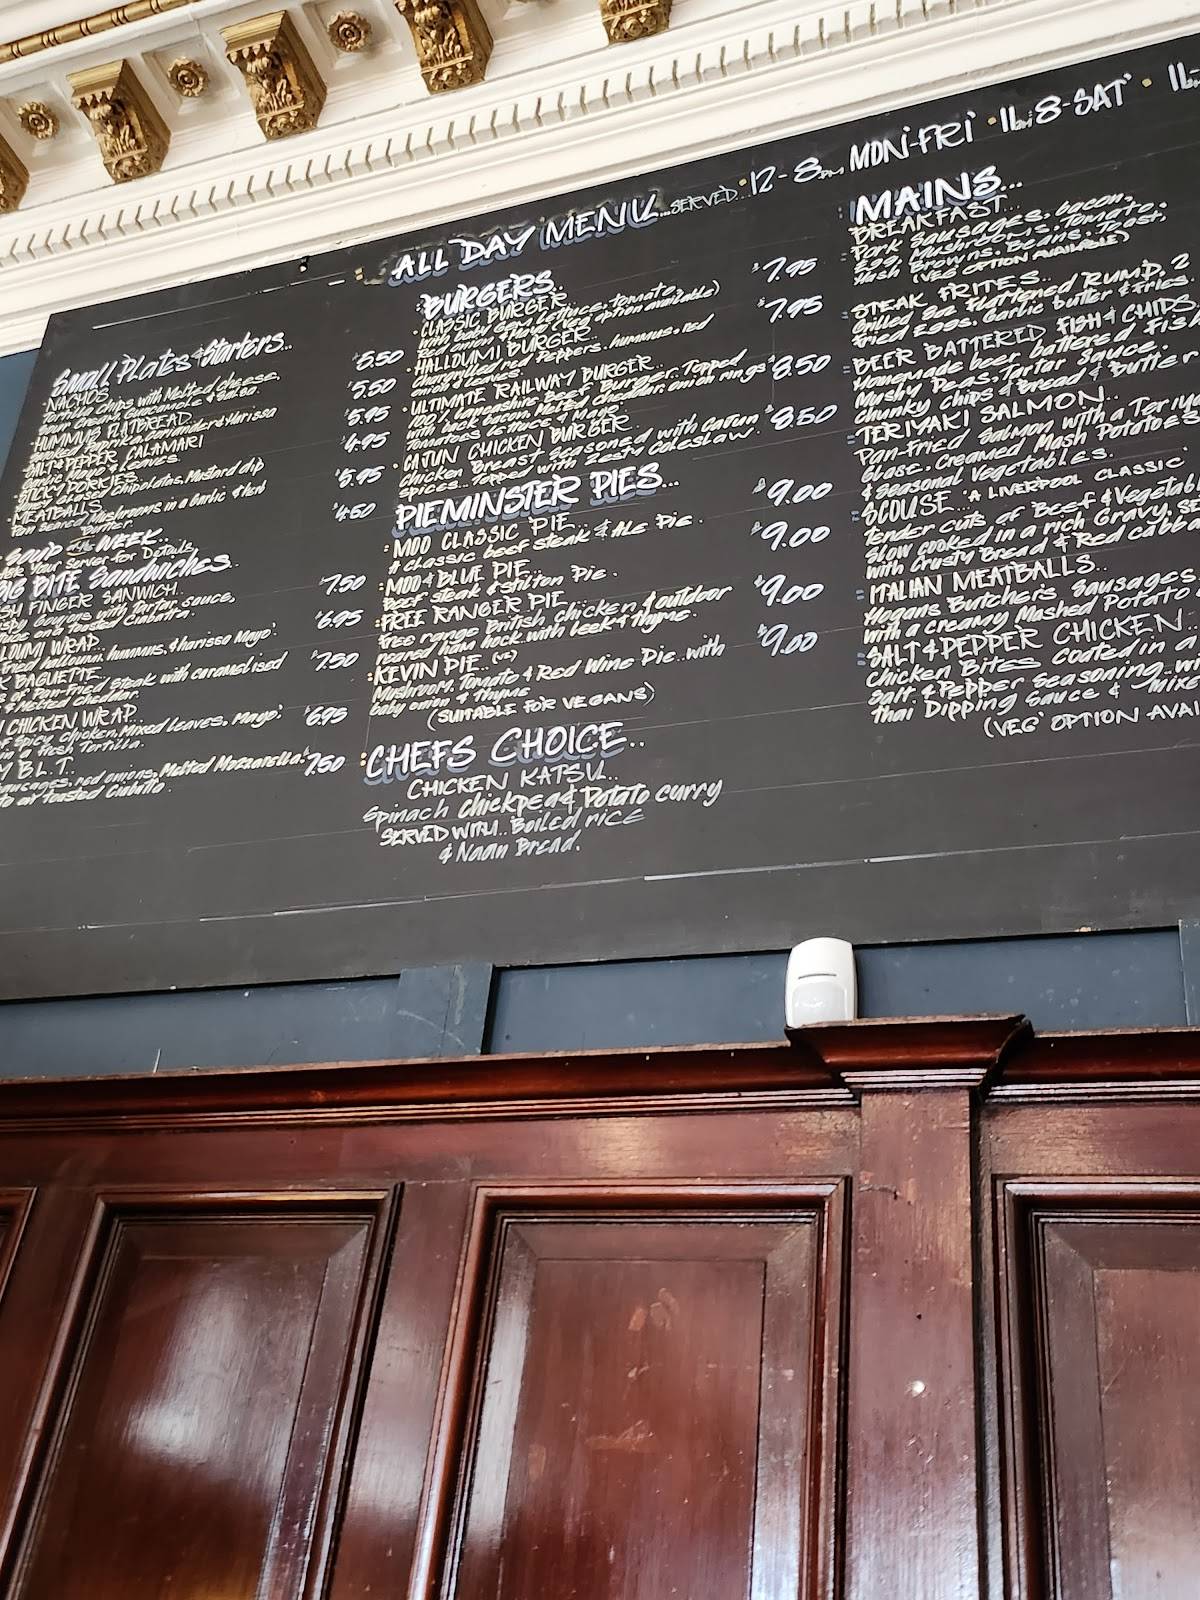 ALL DAY MENU...SERVED..12-8PM MON-FRI · 11am 8-SAT · 11
Small Plates & Starters...
NACHOS
Tortilla chips with Melted cheese,
Sour Cream, Guacamole & Salsa. 5.50
HUMMUS FLATBREAD
Smoked Paprika, & Harissa 5.50
SALT & PEPPER CALAMARI
Garlic Mayo & Leaves 5.95
STICKY PORKIES
Chipolatas, Mustard dip 4.95
MEATBALLS 5.95
Pan Seared Mushrooms in a Garlic & Herb
Butter 4.50
Soup of the WEEK..
Your Server for Details
BIG BITE Sandwiches..
SH FINGER SANWICH..
Goujons with Tartar Sauce,
Toasted Ciabatta. 7.50
LOUMI WRAP..
Fried halloumi, hummus, & harissa Mayo' 6.95
K BAGUETTE..
of Pan-Fried Steak with caramelised
& Melted cheddar. 7.50
CHICKEN WRAP...
Spicy Chicken, Mixed Leaves, Mayo'
Fresh Tortilla. 6.95
B.L.T.
Sausages, red onions, Melted Mozzarella'
Toasted Ciabatta. 7.50
BURGERS..
CLASSIC BURGER..
With baby Gem Lettuce, Tomato,
Red onion & Mayo (veg option available) £7.95
HALLOUMI BURGER..
Chargrilled red Peppers, hummus, red
onion & Leaves £7.95
ULTIMATE RAILWAY BURGER..
100% Lancashire Beef Burger, Topped
with Back Bacon, Melted Cheddar, onion rings
Tomatoes Lettuce & Mayo' £8.50
CAJUN CHICKEN BURGER..
Chicken Breast Seasoned with Cajun
Spices.. Topped with Zesty Coleslaw. £8.50
PIEMINSTER PIES...
MOO CLASSIC PIE..
A classic beef steak & Ale Pie. £9.00
MOO & BLUE PIE..
Beef steak & Stilton Pie. £9.00
FREE RANGER PIE..
Free range British chicken & outdoor
reared ham hock with leek & thyme. £9.00
KEVIN PIE..(ve)
Mushroom, Tomato & Red Wine Pie..with
baby onion & thyme £9.00
(SUITABLE FOR VEGANS)
CHEFS CHOICE..
CHICKEN KATSU..
Spinach Chickpea & Potato curry
SERVED WITH.. Boiled rice
& Naan Bread.
MAINS...
BREAKFAST...
Pork Sausages, bacon,
Egg, Mushrooms, Tomato,
Hash Browns, Beans, Toast,
(VEG OPTION AVAILABLE)
STEAK FRITES..
Grilled 8oz Flattened Rump. 2
Fried Eggs, Garlic butter & Fries.
BEER BATTERED FISH & CHIPS
Homemade beer battered Fish
Mushy Peas, Tartar Sauce.
Chunky Chips & Bread & Butter
TERIYAKI SALMON..
Pan-Fried Salmon with a Teriya
Glaze, Creamed Mash Potatoes
& Seasonal Vegetables.
SCOUSE.. 'A LIVERPOOL CLASSIC'
Tender cuts of Beef & Vegetabl
Slow cooked in a rich Gravy. se
with Crusty Bread & Red cabb
ITALIAN MEATBALLS..
Hogans Butchers Sausages
with a creamy Mashed Potato
SALT & PEPPER CHICKEN..
Chicken Bites Coated in a
Salt & Pepper Seasoning..w
Thai Dipping Sauce & mixe
(VEG' OPTION AVAI